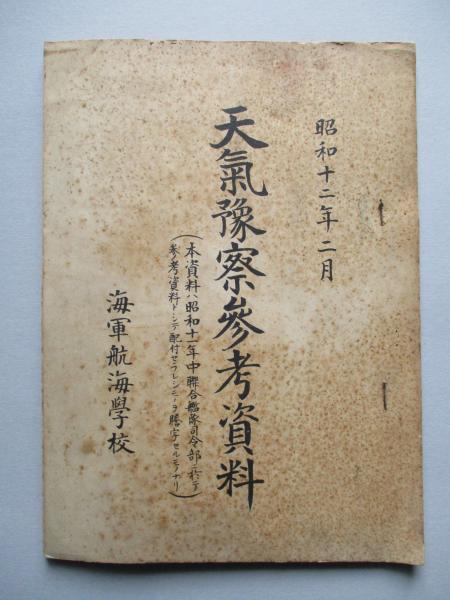 昭和十二年二月
天氣豫察參考資料
(本資料ハ昭和十一年中聯合艦隊司令部ニ於テ
參考資料トシテ配付セラレシモノヲ謄字セルモノナリ)
海軍航海學校